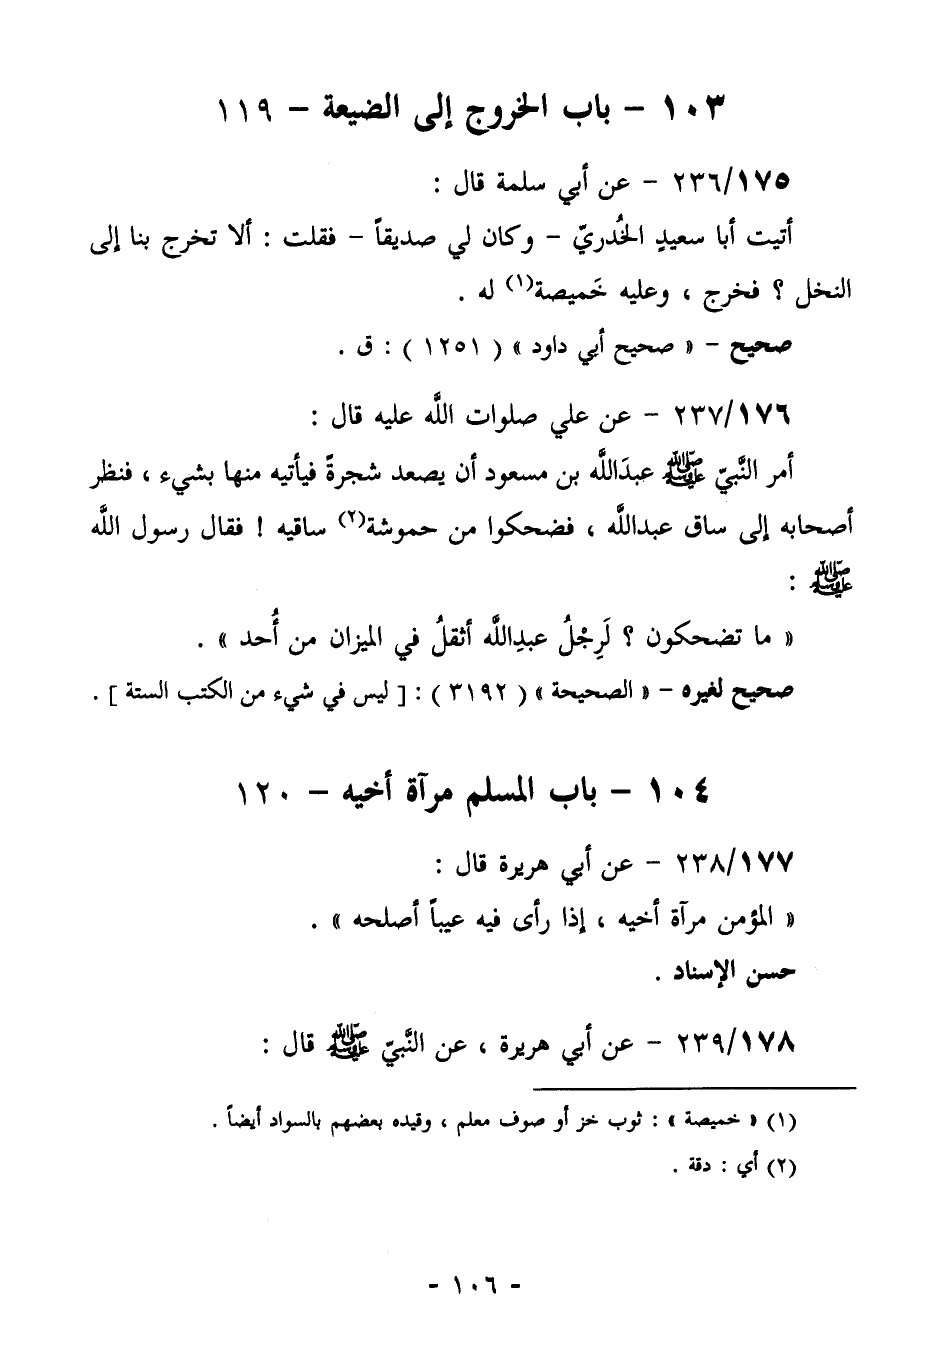 ١٠٣ - باب الخروج إلى الضيعة - ١١٩
٢٣٦/١٧٥ - عن أبي سلمة قال :
أتيت أبا سعيدٍ الخُدريّ - وكان لي صديقاً - فقلت : ألا تخرج بنا إلى
النخل ؟ فخرج ، وعليه خَميصة(١) له .
صحيح - « صحيح أبي داود » ( ١٢٥١ ) : ق .
٢٣٧/١٧٦ - عن علي صلوات اللَّه عليه قال :
أمر النَّبيّ ﷺ عبدَاللَّه بن مسعود أن يصعد شجرةً فيأتيه منها بشيء ، فنظر
أصحابه إلى ساق عبداللَّه ، فضحكوا من حموشة(٢) ساقيه ! فقال رسول اللَّه
ﷺ :
« ما تضحكون ؟ لَرِجْلُ عبدِاللَّه أثقلُ في الميزان من أُحد » .
صحيح لغيره - « الصحيحة » ( ٣١٩٢ ) : [ ليس في شيء من الكتب الستة ] .
١٠٤ - باب المسلم مرآة أخيه - ١٢٠
٢٣٨/١٧٧ - عن أبي هريرة قال :
« المؤمن مرآة أخيه ، إذا رأى فيه عيباً أصلحه » .
حسن الإسناد .
٢٣٩/١٧٨ - عن أبي هريرة ، عن النَّبيّ ﷺ قال :
(١) « خميصة » : ثوب خز أو صوف معلم ، وقيده بعضهم بالسواد أيضاً .
(٢) أي : دقة .
- ١٠٦ -